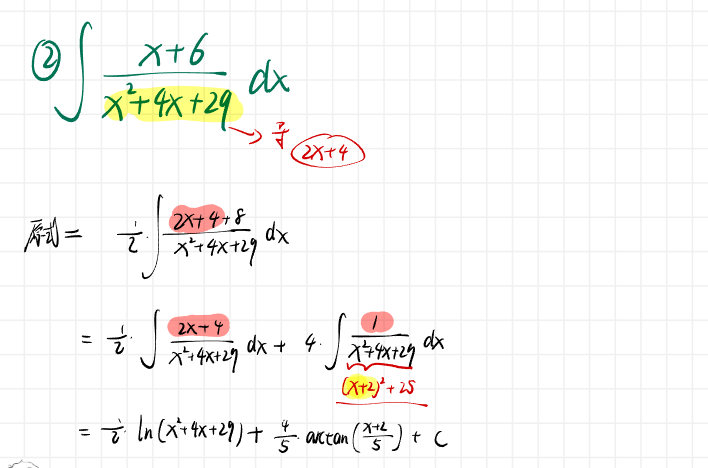 ② ∫ (x+6)/(x²+4x+29) dx
→ 导 2x+4
原式 = 1/2 · ∫ (2x+4+8)/(x²+4x+29) dx
= 1/2 · ∫ (2x+4)/(x²+4x+29) dx + 4 · ∫ 1/(x²+4x+29) dx
(x+2)²+25
= 1/2 · ln(x²+4x+29) + 4/5 · arctan((x+2)/5) + C